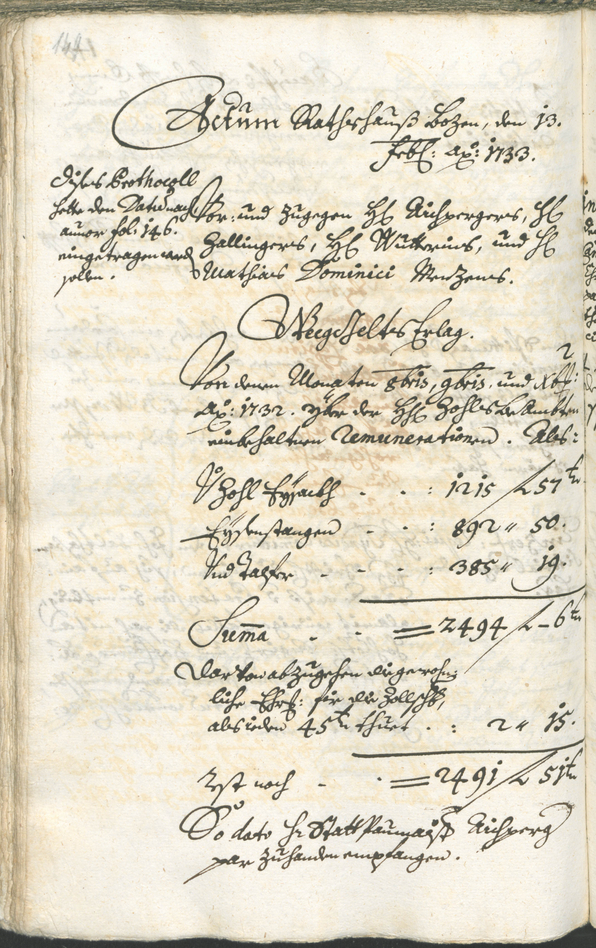 144
Actum Rathshauß Bozen, den 13.
Febr: Aõ: 1733.
Dises Prothocoll
hette den Datum nach
anvor fol: 146.
eingetragen werd
sollen.
Vor: und zugegen H: Aichpergers, H:
Zallingers, H: Wutterins, und H:
Mathias Dominici Menzens.
Weeggelts Erlag.
Von denen Monaten 8bris, 9bris, und Xbr:
Aõ: 1732. yber der HH: Zohls Beambten
einbehaltnen Remunerationen. Als:
V Zohl Eysackh - - : 1215 f 57 kr
Eysenstangen - - : 892 " 50.
Und Talfer - - - : 385 " 19.
Suma - - = 2494 f - 6 kr
Darvon abzugehen die gewohn-
liche Ehrs: für die Zollschr:
als ieden 45 kr thuet . : 2 " 15.
Yst noch - . = 2491 f 51 kr
So dato H: Statt Paumaistr Aichperg
par zuhanden empfangen.